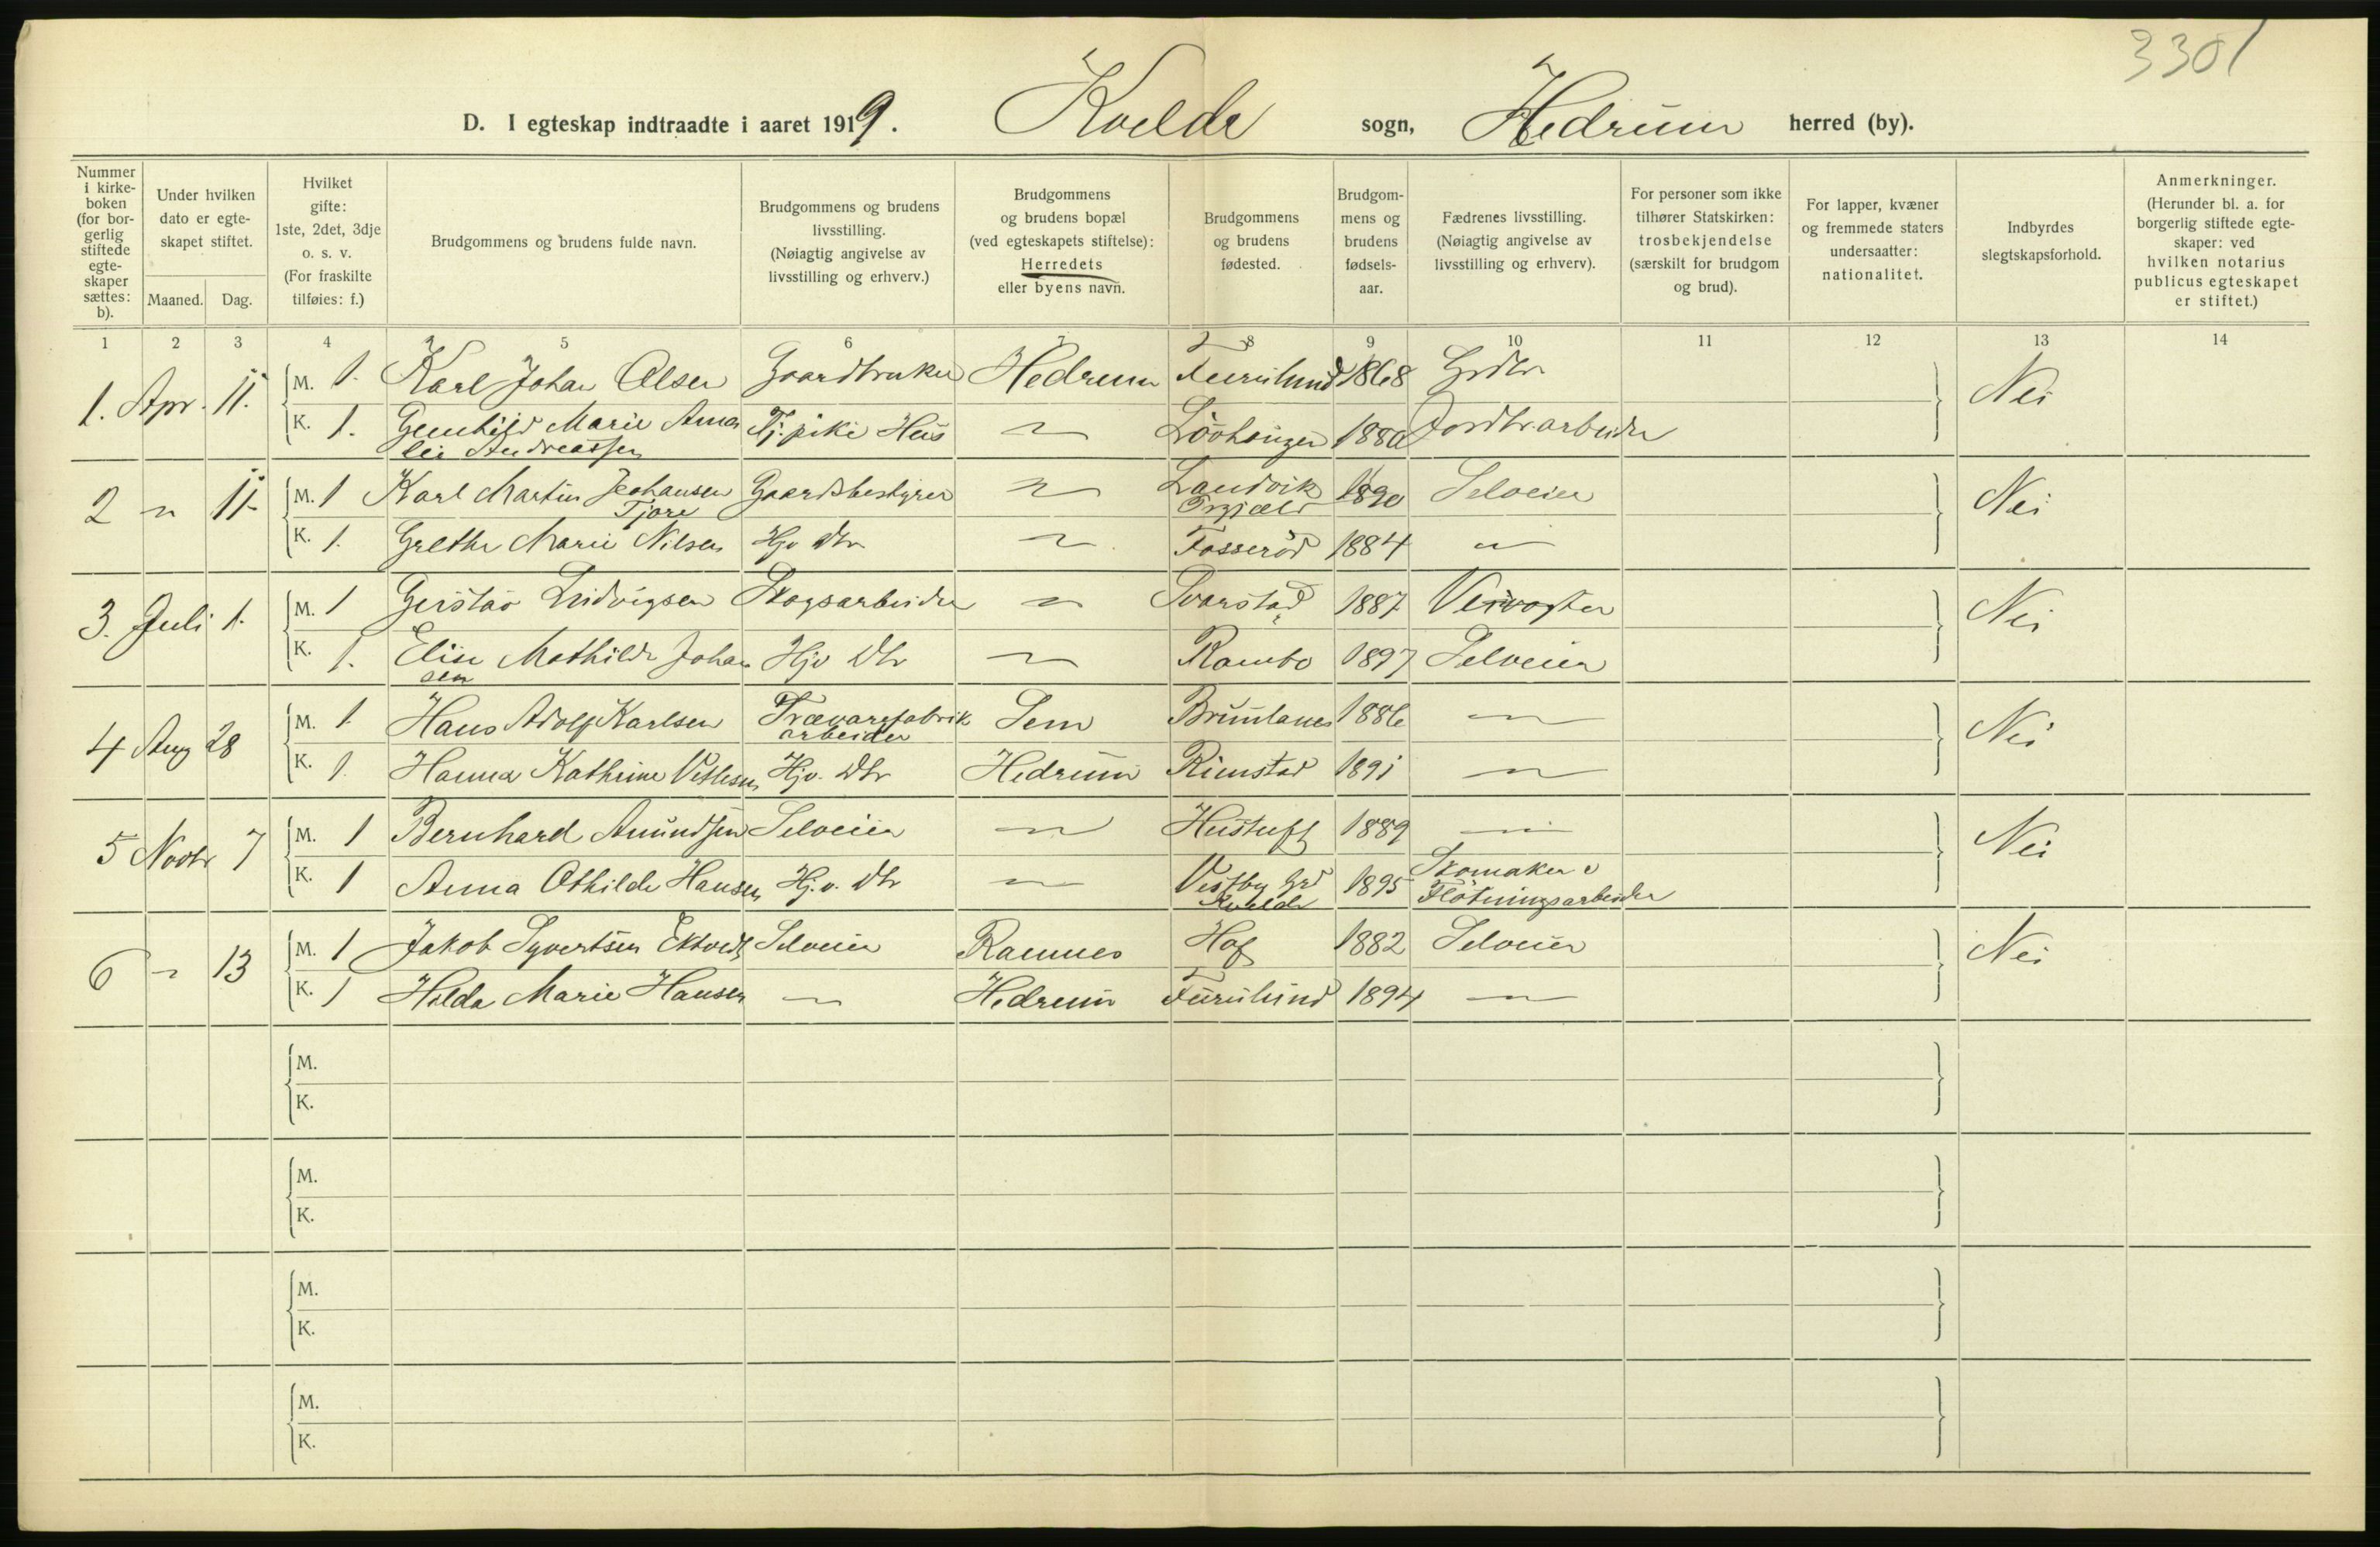 3301
D. I egteskap indtraadte i aaret 1919. Kvelde sogn, Hedrum herred (by).
Nummer i kirkeboken (for borgerlig stiftede egteskaper sættes: b).
Under hvilken dato er egteskapet stiftet.
Maaned. Dag.
Hvilket gifte: 1ste, 2det, 3dje o. s. v. (For fraskilte tilføies: f.)
Brudgommens og brudens fulde navn.
Brudgommens og brudens livsstilling. (Nøiagtig angivelse av livsstilling og erhverv.)
Brudgommens og brudens bopæl (ved egteskapets stiftelse): Herredets eller byens navn.
Brudgommens og brudens fødested.
Brudgommens og brudens fødselsaar.
Fædrenes livsstilling. (Nøiagtig angivelse av livsstilling og erhverv).
For personer som ikke tilhører Statskirken: trosbekjendelse (særskilt for brudgom og brud).
For lapper, kvæner og fremmede staters undersaatter: nationalitet.
Indbyrdes slegtskapsforhold.
Anmerkninger. (Herunder bl. a. for borgerlig stiftede egteskaper: ved hvilken notarius publicus egteskapet er stiftet.)
1 2 3 4 5 6 7 8 9 10 11 12 13 14
1. Apr. 11. M. 1. Karl Johan Olsen Gaardbruker Hedrum Furulund 1868 Grdbr Nei
K. 1. Gunhild Marie Ama Tj. pike Hus " 1880 Jordbr.arbeider
lie Andreassen
2 " 11. M. 1 Karl Martin Jeohansen Gaardsbestyrer " Landvik 1890 Selveier Nei
Tjore
K. 1. Grethe Marie Nilsen Hjv Dtr " Fosserød 1884 "
3. Juli 1. M. 1 Gustav Ludvigsen Skogsarbeider " Svarstad 1887 Veivogter Nei
K. 1. Elise Mathilde Johan Hjv Dtr " Rambo 1897 Selveier
sen
4 Aug 28 M. 1 Hans Adolf Karlsen Trævarefabrik Sem Brunlanes 1886 " Nei
arbeider
K. 1. Hanna Kathrine Vetlesen Hjv. Dtr Hedrum Rimstad 1891 "
5 Novbr 7 M. 1 Bernhard Amundsen Selveier " Hustuft 1889 " Nei
K. 1 Anna Othilde Hansen Hj.v. Dtr " Vestby Grd 1895 Skomaker o
Kvelde Fløtningsarbeider
6 " 13 M. 1 Jakob Syvertsen Ektvedt Selveier Ramnes Hof 1882 Selveier Nei
K. 1 Hilda Marie Hansen " Hedrum Furulund 1894 "
M.
K.
M.
K.
M.
K.
M.
K.